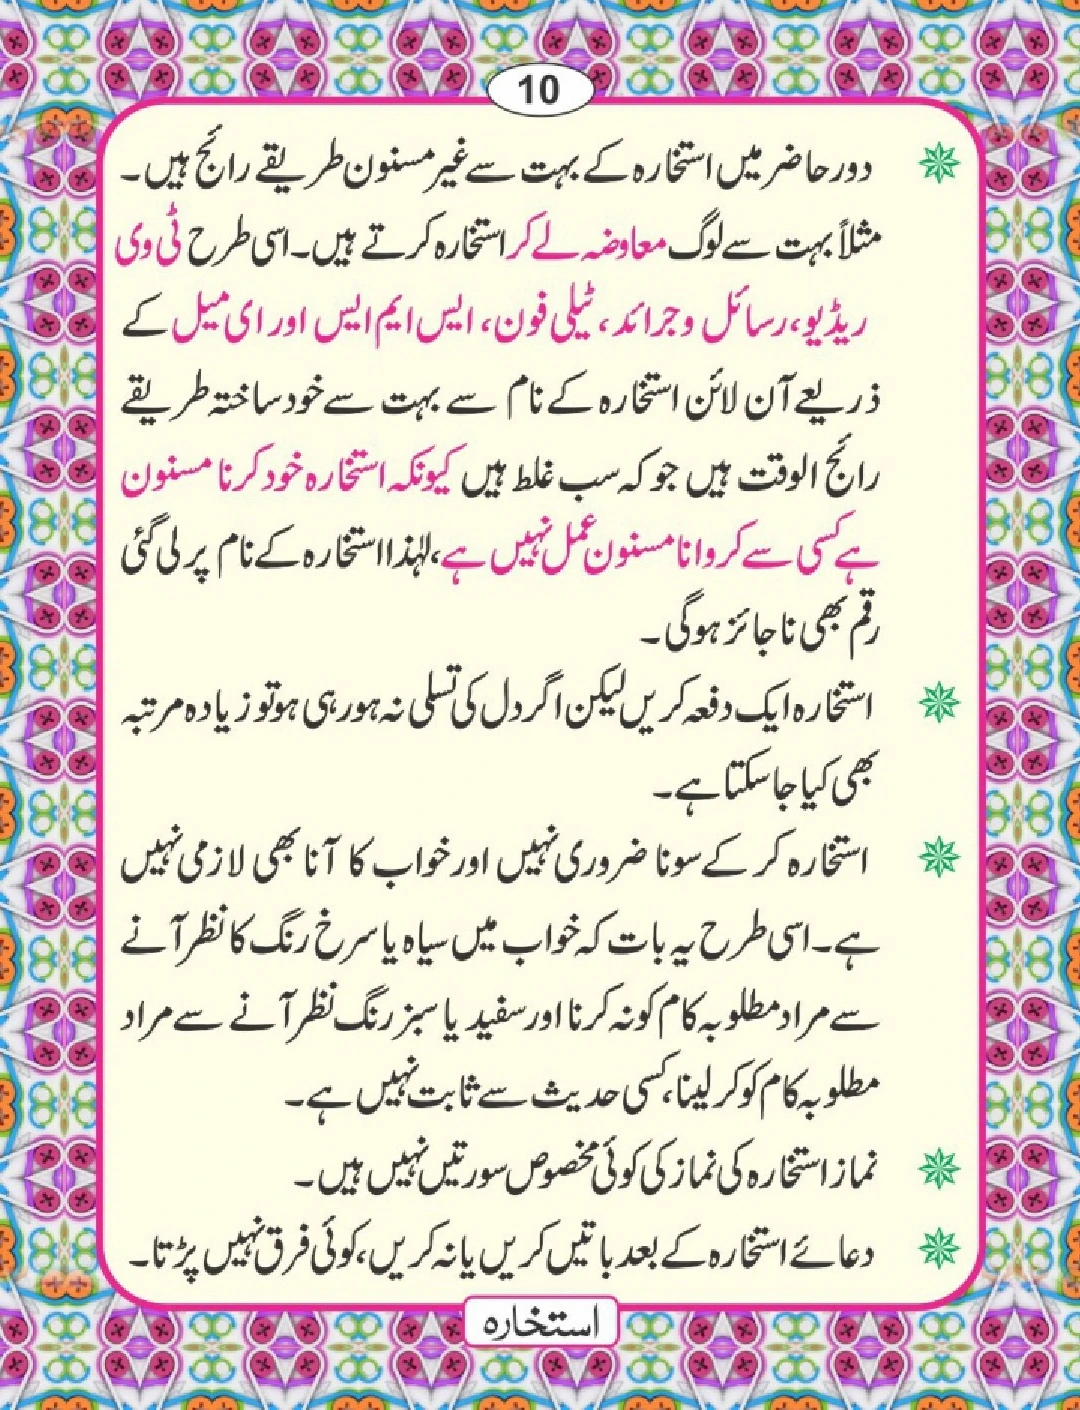 10
دور حاضر میں استخارہ کے بہت سے غیر مسنون طریقے رائج ہیں۔
مثلاً بہت سے لوگ معاوضہ لے کر استخارہ کرتے ہیں۔ اسی طرح ٹی وی
ریڈیو، رسائل و جرائد، ٹیلی فون، ایس ایم ایس اور ای میل کے
ذریعے آن لائن استخارہ کے نام سے بہت سے خود ساختہ طریقے
رائج الوقت ہیں جو کہ سب غلط ہیں کیونکہ استخارہ خود کرنا مسنون
ہے کسی سے کروانا مسنون عمل نہیں ہے، لہٰذا استخارہ کے نام پر لی گئی
رقم بھی ناجائز ہوگی۔
استخارہ ایک دفعہ کریں لیکن اگر دل کی تسلی نہ ہورہی ہو تو زیادہ مرتبہ
بھی کیا جاسکتا ہے۔
استخارہ کر کے سونا ضروری نہیں اور خواب کا آنا بھی لازمی نہیں
ہے۔ اسی طرح یہ بات کہ خواب میں سیاہ یا سرخ رنگ کا نظر آنے
سے مراد مطلوبہ کام کو نہ کرنا اور سفید یا سبز رنگ نظر آنے سے مراد
مطلوبہ کام کو کر لینا، کسی حدیث سے ثابت نہیں ہے۔
نماز استخارہ کی نماز کی کوئی مخصوص سورتیں نہیں ہیں۔
دعائے استخارہ کے بعد باتیں کریں یا نہ کریں، کوئی فرق نہیں پڑتا۔
استخارہ